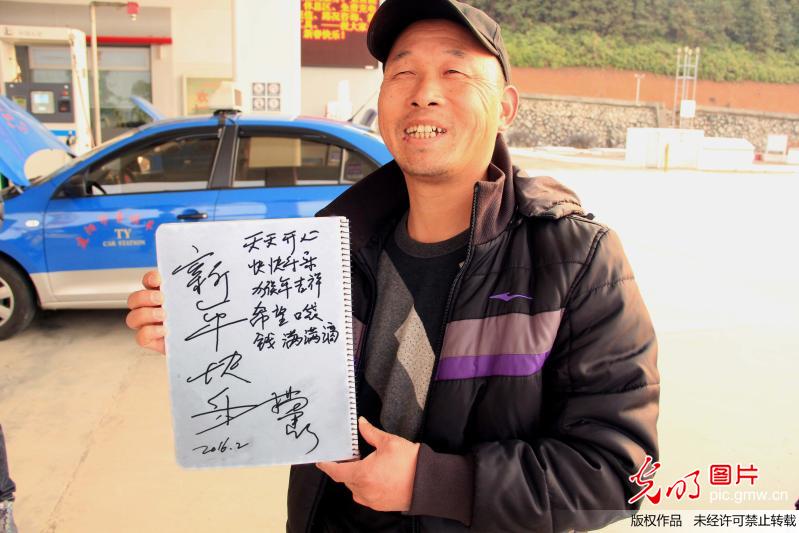 新春快乐!
TY
CAR STATION
新年快乐
天天开心
快快乐乐
猴年吉祥
希望口袋
钱满满滴
2016.2
光明图片
pic.gmw.cn
版权作品 未经许可禁止转载